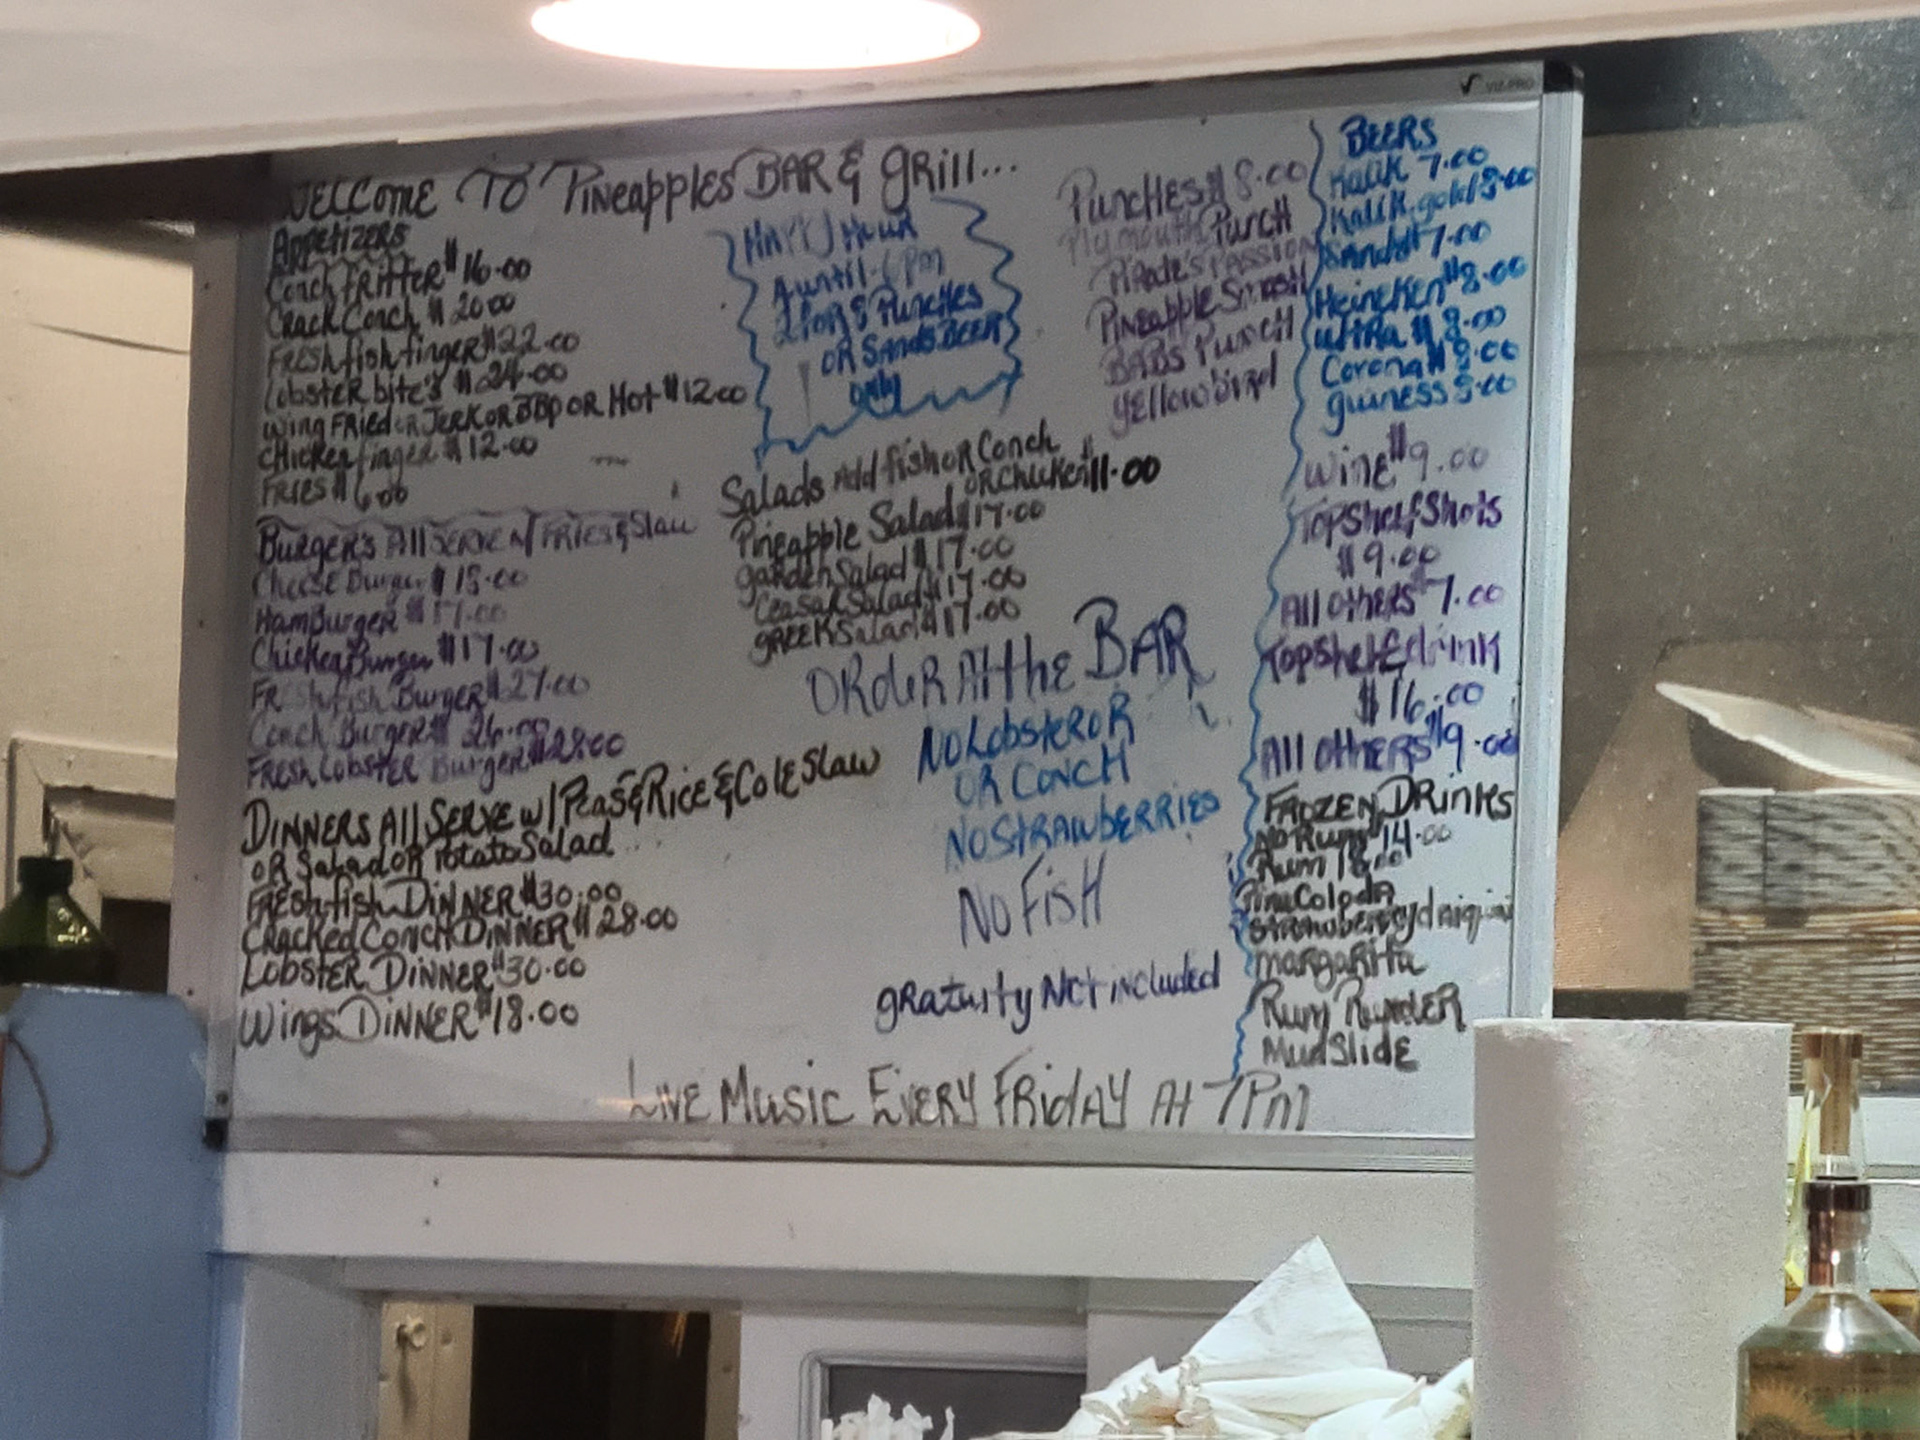 WELCOME TO PINeapples BAR & GRILL...
APPETIZERS
Conch FRITTER $16.00
Crack Conch $2000
FRESH fish finger $22.00
Lobster bite's $24.00
Wing FRIED OR JERK OR BBQ OR Hot $12.00
CHicken finger $12.00
FRIES $6.00
Burger's All SERVE w/ FRIES & Slaw
CheesE Burger $18.00
HamBurgeR $17.00
Chicken Burger $17.00
FRESH fish Burger $27.00
Conch Burger $26.00
FRESH Lobster Burger $28.00
DINNERS All SERVE w/ Peas & Rice & Cole Slaw
OR Salad OR Potato Salad
FREsh fish DINNER $30.00
Cracked Conch DINNER $28.00
LOBSTER DINNER $30.00
Wings DINNER $18.00
HAPPY Hour
4 until 6 Pm
2 for $ Punches
OR Sands BEER
only
Salads Add fish OR Conch
OR Chicken $11.00
Pineapple Salad $17.00
garden Salad $17.00
Ceasar Salad $17.00
GREEK Salad $17.00
ORdeR At the BAR
No Lobster OR
OR CONCH
NO STRAWBERRIES
No FisH
gRatuity Not included
PuncHes $8.00
Plymouth Punch
PiRate's PASSION
PINeapple Smash
BABS PuncH
yellow bird
BEERS
Kalik 7.00
Kalik gold 8.00
Sands 7.00
HeineKen $8.00
ultRa $8.00
Corona $8.00
guiness 8.00
WINE $9.00
Top Shelf Shots
$9.00
All others $7.00
Top Shelf drink
$16.00
All othERS $9.00
FROZEN DRinks
No Rum 14.00
Rum 18.00
Pina Colada
Strawberry daiquiri
margaRita
Rum RunDER
MudSlidE
LIVE Music EVERY FRIdAY At 7Pm
VIZ-PRO